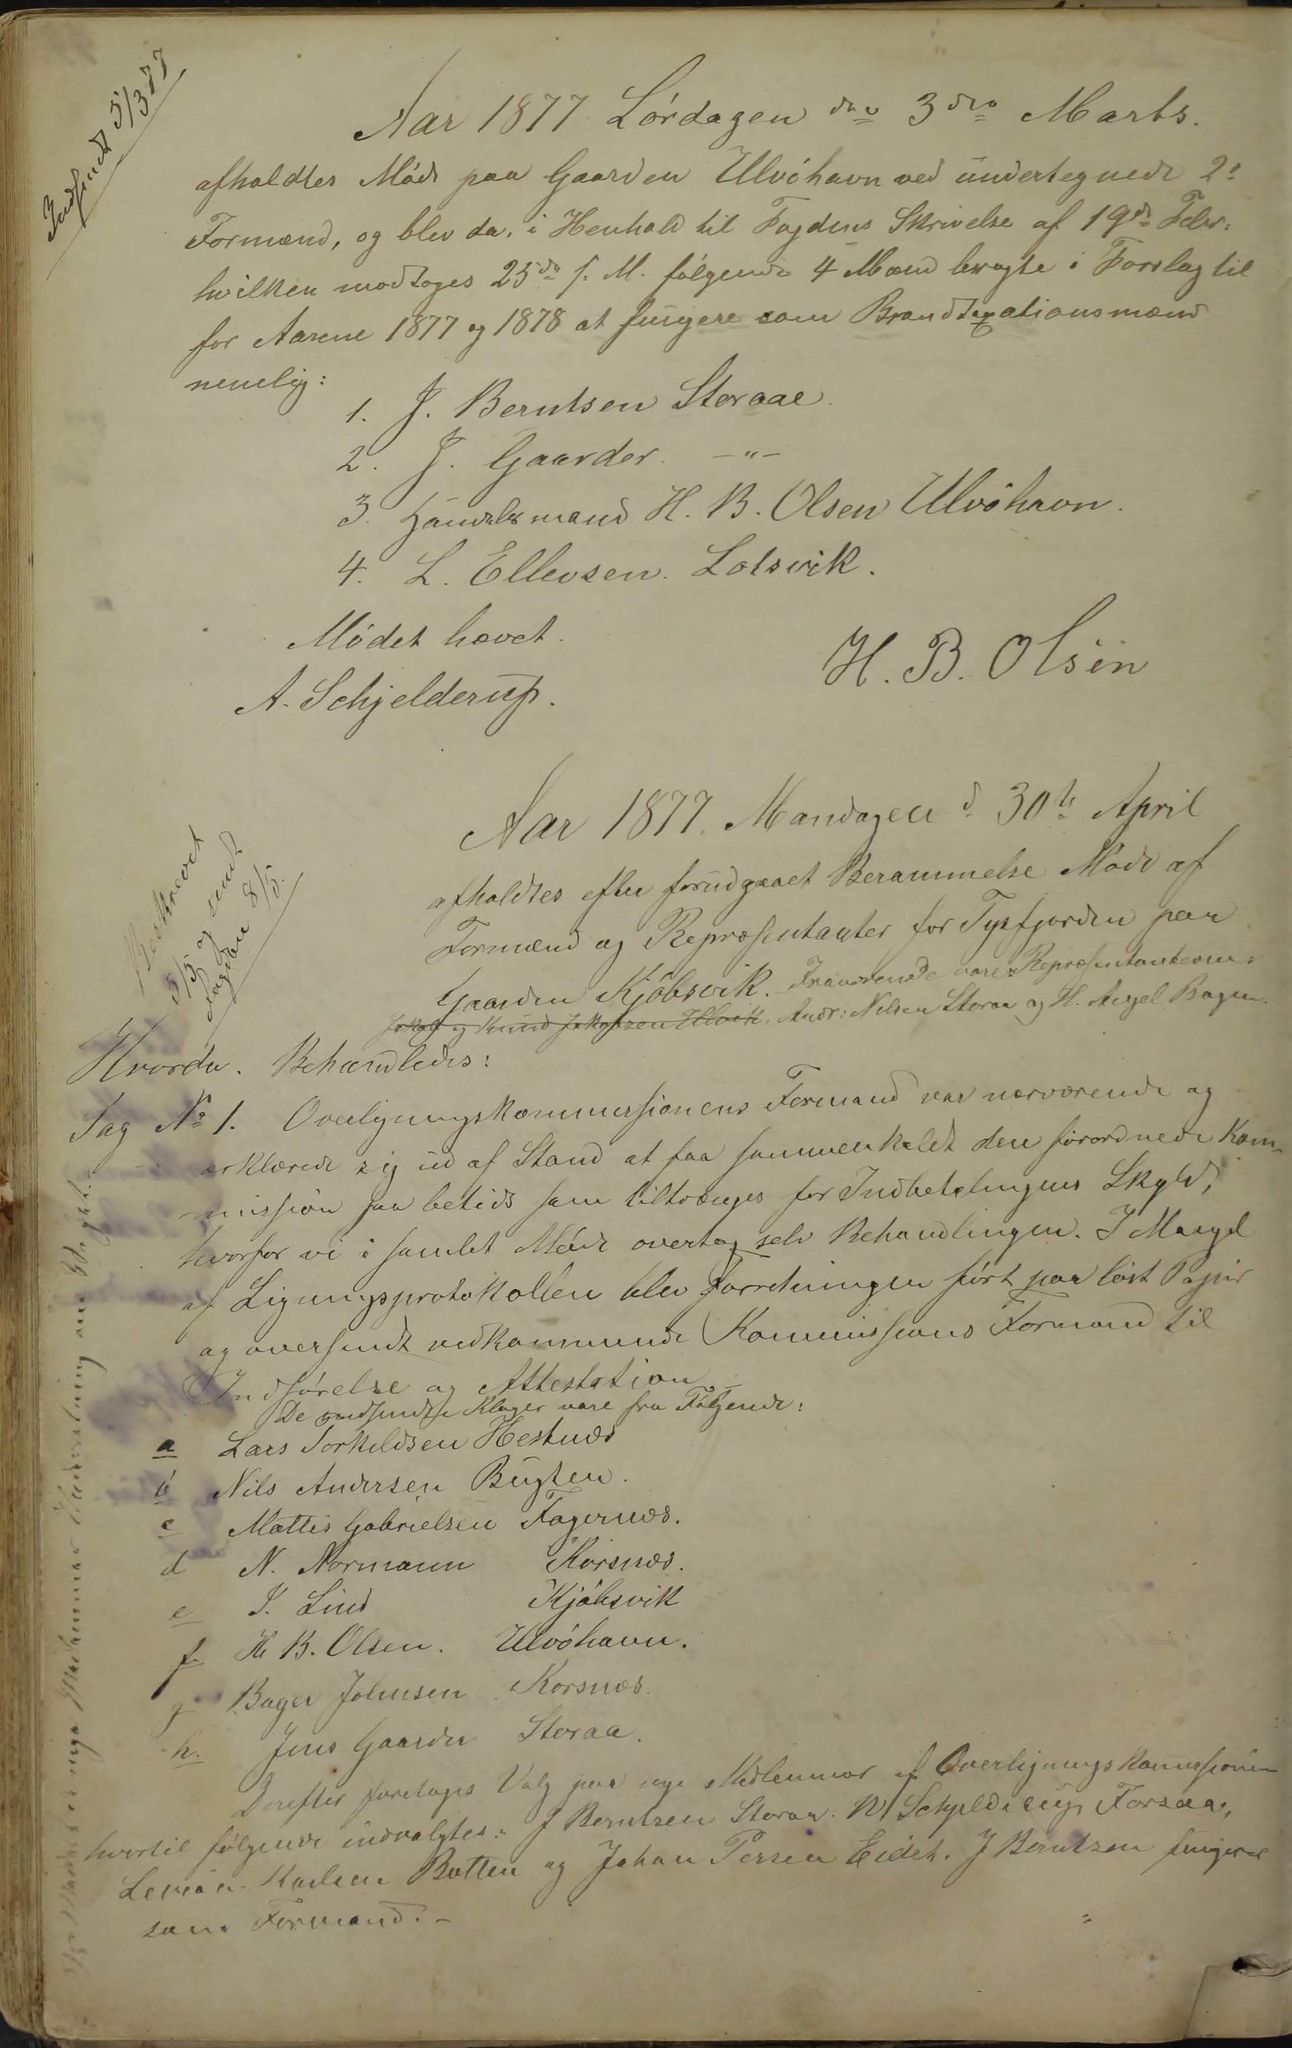 Indsendt 5/3 77
Aar 1877 Lørdagen den 3die Marts.
afholdtes Møde paa Gaarden Ulvøhavn ved undertegnede 2e
Formænd, og blev da i Henhold til Fogdens Skrivelse af 19de Febr:
hvilken modtoges 25de s. M. følgende 4 Mænd bragte i Forslag til
for Aarene 1877 og 1878 at fungere som Brandtaxationsmænd
nemlig:
1. J. Berntsen Storaae.
2. J. Gaarder. —"—
3. Handelsmand H. B. Olsen Ulvøhavn.
4. L. Ellevsen. Lotsvik.
Mødet hævet.
H. B. Olsen
A. Schjelderup.
Aar 1877. Mandagen d 30te April
Beskrevet
5/5 og sendt
Fogden 8/5.
afholdtes efter forudgaaet Berammelse Møde af
Formænd og Repræsentanter for Tysfjorden paa
Gaarden Kjøbsvik. Fraværende vare Repræsentanterne:
Jakob og Knud Jakobsen Ulvik, Andr: Nilsen Storaa og H. Angel Bogen.
Hvorda. Behandledes:
Sag No 1. Overligningskommissionens Formand var nærværende og
erklærede sig ud af Stand at faa sammenkaldt den forordnede Kom-
mission saa betids som tiltrænges for Indbetalingens Skyld,
hvorfor vi i samlet Møde overtog selv Behandlingen. I Mangel
af Ligningsprotokollen blev Forretningen ført paa løst Papir
og oversendt vedkommende Kommissions Formand til
Indførelse og Attestation.-
De indsendte Klager vare fra Følgende:
a Lars Torkildsen Hestnæs
b Nils Andersen Bugten.
c Mattis Gabrielsen Fagernæs.
d N. Normann Korsnæs.
e I. Lind Kjøbsvik
f H. B. Olsen. Ulvøhavn.
g Bager Johnsen Korsnæs.
h. Jens Gaarder Storaa.
Derefter foretoges Valg paa nye Medlemmer af Overligningskommissionen
hvortil følgende indvalgtes: J Berntsen Storaa. W Schjelderup Forsaa,
Karlsen Botten og Johan Persen Eidet. J Berntsen fungerer
som Formand.-